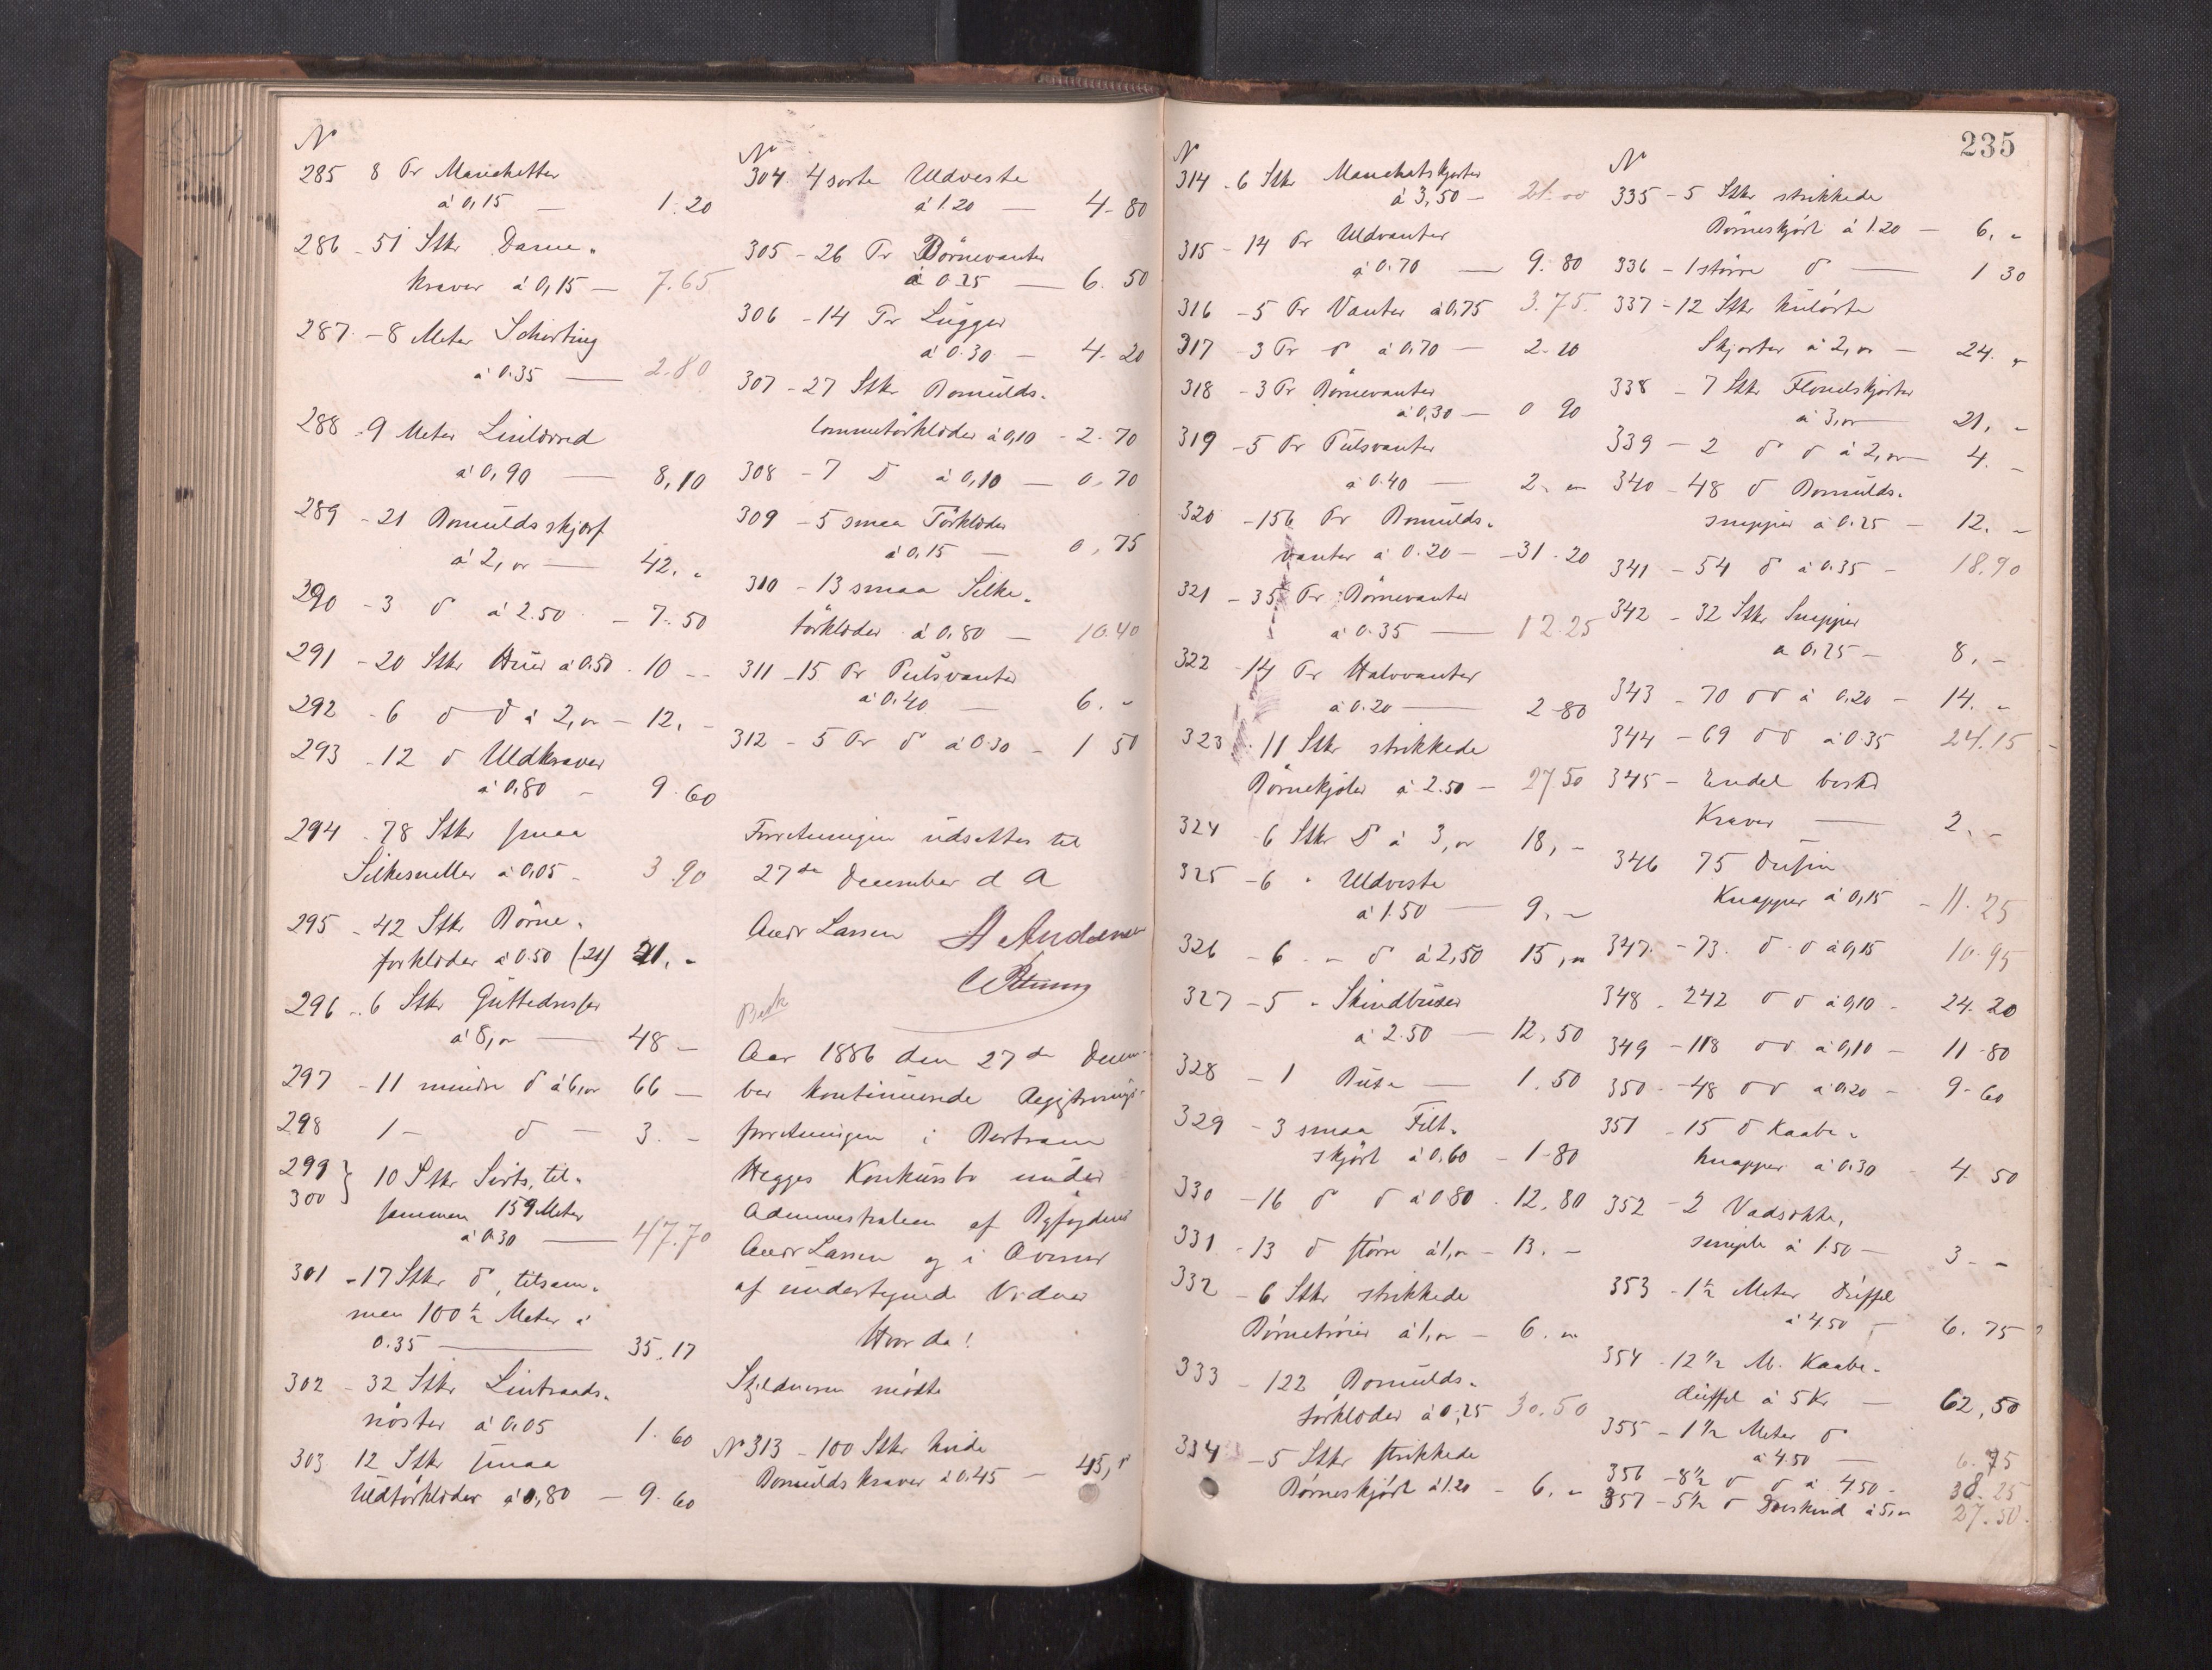 N
285 8 Pr Manchetter
à 0,15 — 1.20
286 - 51 Stkr Dame-
kraver à 0,15 — 7.65
287 - 8 Meter Schirting
à 0.35 — 2.80
288 - 9 Meter Linlærred
à 0,90 — 8,10
289 - 21 Bomuldsskjærf
à 2, — 42. "
290 - 3 do à 2.50 - 7.50
291 - 20 Stkr Huer à 0.50 - 10 --
292 - 6 do do à 2, - 12. -
293 - 12 do Uldkraver
à 0,80 - 9.60
294 - 78 Stkr smaa
Silkesneller à 0,05 - 3 90
295 - 42 Stkr Börne-
forklæder à 0.50 (21) 21. -
296 - 6 Stkr Guttedresser
à 8, — 48 -
297 - 11 mindre do à 6, 66 -
298 1 - do - 3. -
299 } 10 Stkr Sirts, til-
300 sammen 159 Meter
à 0.30 — 47.70
301 - 17 Stkr do, tilsam-
men 100 ½ Meter à
0.35 — 35.17
302 - 32 Stkr Lintraads-
nöster à 0.05 1.60
303 12 Stkr smaa
Uldtörklæder à 0,80 - 9.60
N
304 4 sorte Uldveste
à 1.20 — 4-80
305 - 26 Pr Börnevanter
à 0.25 — 6.50
306 - 14 Pr Lugger
à 0.30 - 4.20
307 - 27 Stkr Bomulds-
lommetörklæder à 0,10 - 2.70
308 - 7 D à 0,10 - 0.70
309 - 5 smaa Törklæder
à 0.15 — 0,75
310 - 13 smaa Silke-
törklæder à 0.80 - 10.40
311 - 15 Pr Pulsvanter
à 0.40 — 6. -
312 - 5 Pr do à 0.30 - 1 50
Forretningen udsættes til
27de December d A
Andr Larsen A Andersen
Aar 1886 den 27de Decem-
ber kontinuerede Registrerings-
forretningen i Bertram
Hegges Konkursbo under
Administration af Byfogden
Andr Larsen og i Overvær
af undertegnede Vidner
Hvor da!
Skyldneren mödte
N 313 - 100 Stkr hvide
Bomulds kraver à 0.45 - 45,"
235
N
314 - 6 Stkr Manchetskjorter
à 3,50 - 21.00
315 - 14 Pr Uldvanter
à 0.70 — 9.80
316 - 5 Pr Vanter à 0,75 3.75.
317 - 3 Pr do à 0,70 - 2.10
318 - 3 Pr Börnevanter
à 0,30 - 0 90
319 - 5 Pr Pulsvanter
à 0.40 — 2. "
320 - 156 Pr Bomulds-
vanter à 0.20 - 31.20
321 - 35 Pr Börnevanter
à 0.35 — 12.25
322 - 14 Pr Halvvanter
à 0.20 — 2-80
323 - 11 Stkr strikkede
Börnekjoler à 2.50 - 27 50
324 6 Stkr D à 3, 18, -
325 - 6 " Uldveste
à 1.50 — 9. -
326 - 6 - do à 2,50 15,"
327 - 5 " Skindbuxer
à 2.50 — 12,50
328 - 1 Buxe — 1.50
329 - 3 smaa Filt-
skjört à 0.60 - 1-80
330 - 16 do do à 0.80 - 12,80
331 - 13 do större à 1, - 13. -
332 - 6 Stkr strikkede
Börnetröier à 1, - 6. "
333 - 122 Bomulds-
törklæder à 0,25 30.50
334 - 5 Stkr strikkede
Börneskjört à 1.20 - 6. -
N
335 - 5 Stkr strikkede
Börneskjört à 1.20 - 6, "
336 - 1 större do — 1 30
337 - 12 Stkr kulörte
Skjorter à 2, - 24. "
338 - 7 Stkr Flonelskjorter
à 3, — 21, -
339 - 2 do do à 2, — 4. -
340 - 48 do Bomulds-
snipper à 0.25 - 12. -
341 - 54 do à 0.35 - 18.90
342 - 32 Stkr Snipper
à 0.25 - 8, -
343 - 70 do do à 0,20 - 14. -
344 - 69 do do à 0.35 24.15
345 - Endel besk
Kraver — 2. -
346 75 Dusin
Knapper à 0,15 - 11.25
347 - 73. do do à 0,15 10.95
348 - 242 do do à 0,10 - 24.20
349 - 118 do do à 0,10 - 11-80
350 - 48 do do à 0.20 - 9-60
351 - 15 do Kaabe-
knapper à 0.30 - 4.50
352 - 2 Vadsække,
simple à 1.50 — 3. -
353 - 1½ Meter Duffel
à 4.50 — 6.75
354 - 12½ M. Kaabe-
duffel à 5 Kr — 62,50
355 - 1½ Meter do
à 4.50 — 6.75
356 - 8½ do do à 4.50 - 38.25
357 - 5½ do Doeskind à 5, 27.50.